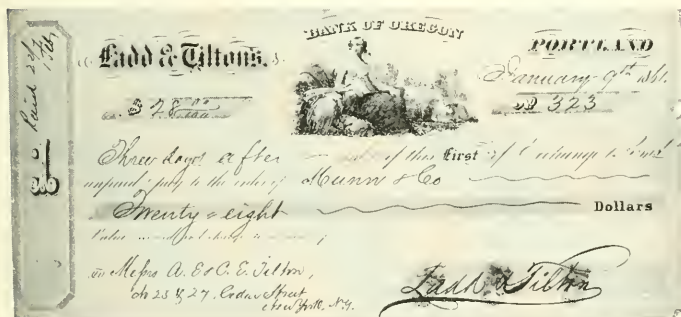 Paid 23/
Ladd & Tilton's.
BANK OF OREGON
PORTLAND
January 9th 1861.
$ 28.00
No 323
Three days after of this First of Exchange
unpaid pay to the order of Munn & Co
Twenty-eight Dollars
Value
To Messrs A. & C. E. Tilton,
25 & 27, Cedar Street
New York. N.Y.
Ladd & Tilton